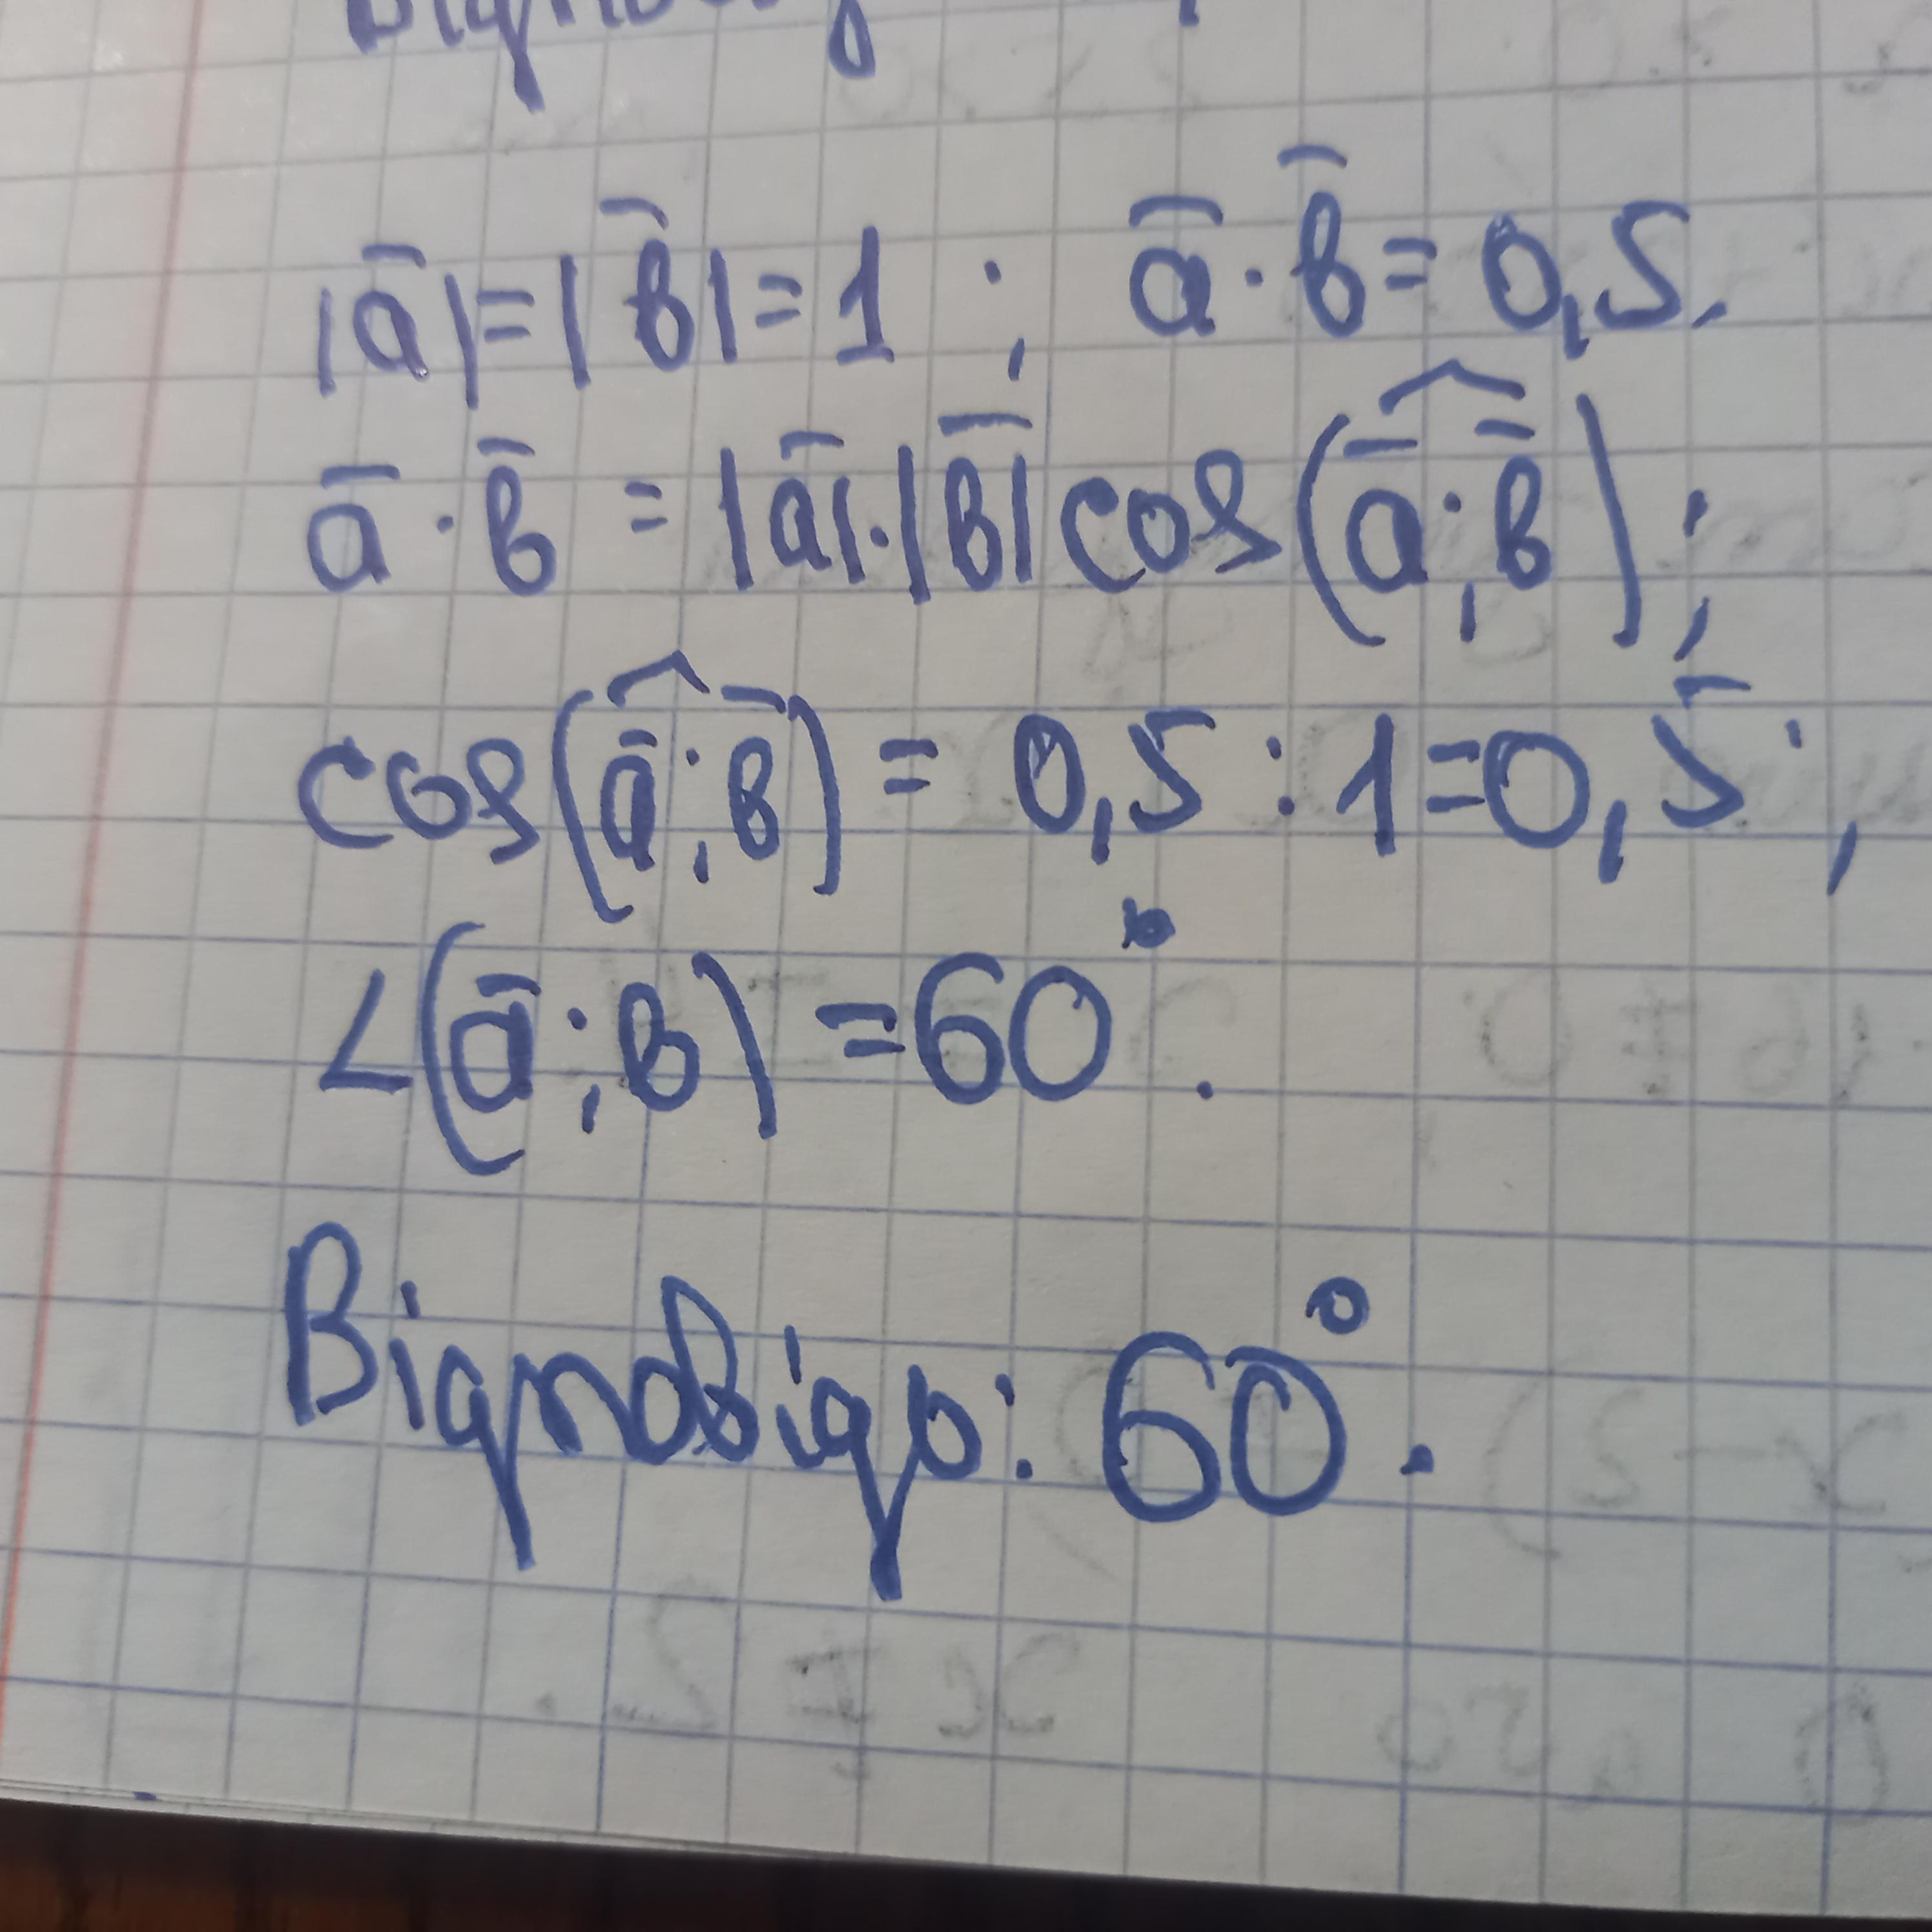 |a̅| = |b̅| = 1 ; a̅ · b̅ = 0,5.
a̅ · b̅ = |a̅| · |b̅| cos(a̅ ; b̅) ;
cos(a̅ ; b̅) = 0,5 : 1 = 0,5 ;
∠(a̅ ; b) = 60°.
Відповідь: 60°.